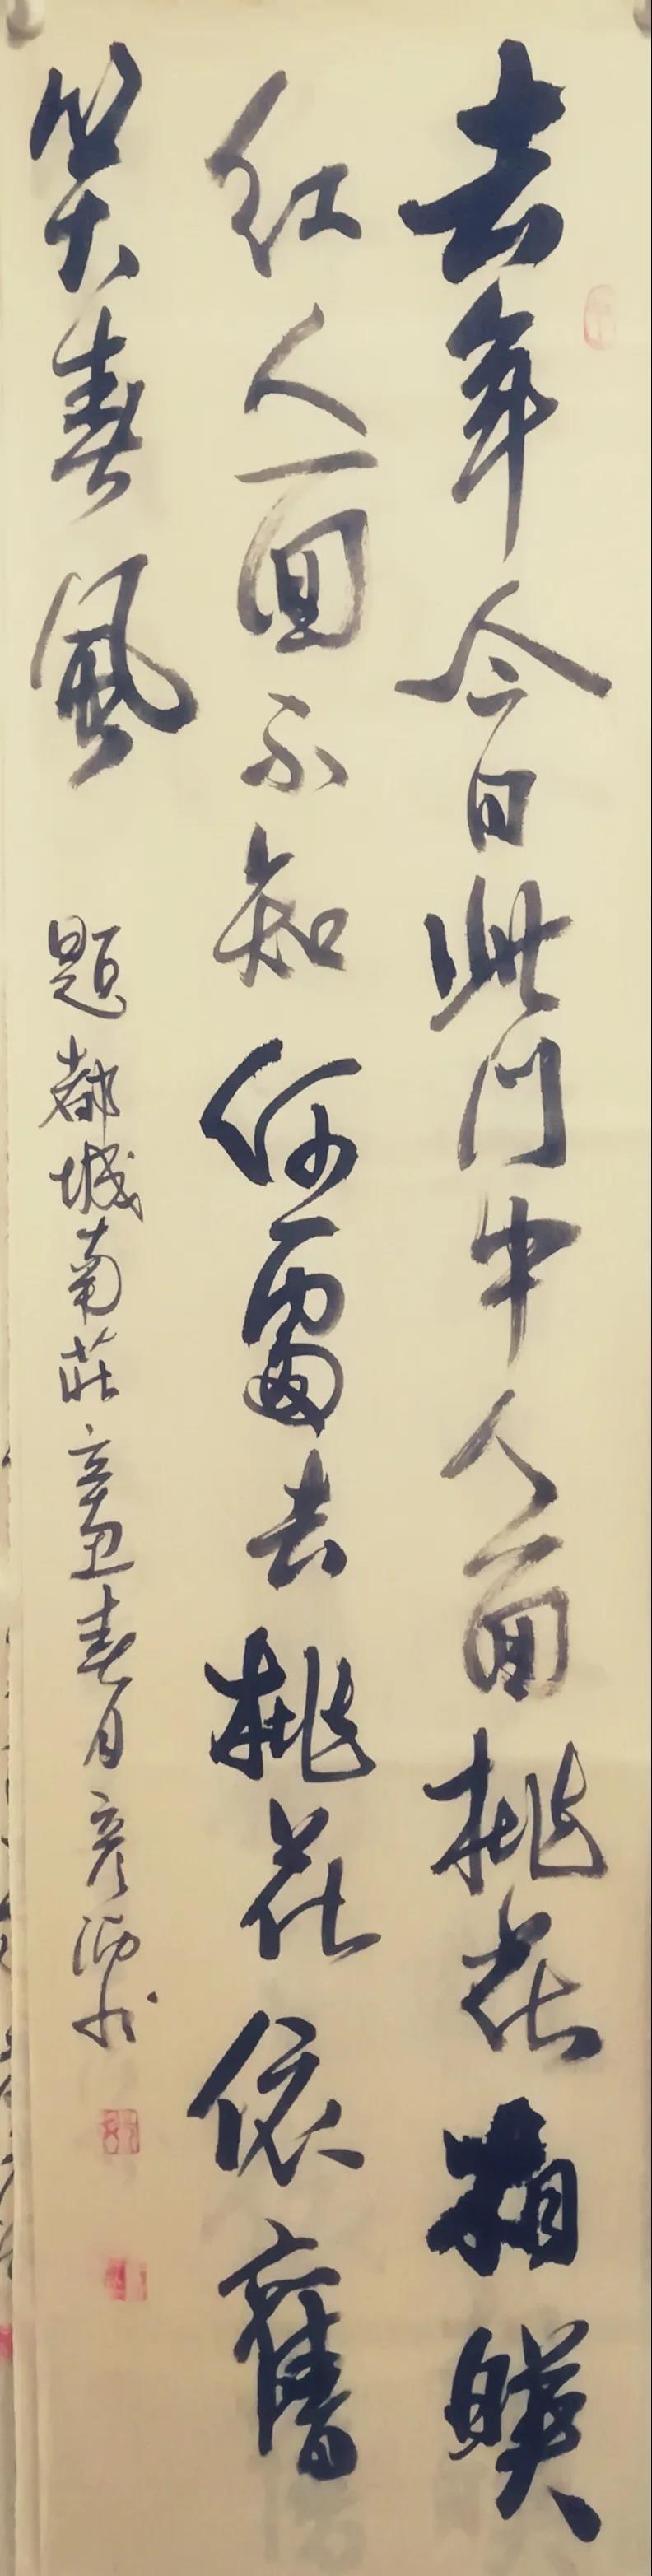 去年今日此門中人面桃花相暎
紅人面不知何處去桃花依舊
笑春風
題都城南莊辛丑春月彦